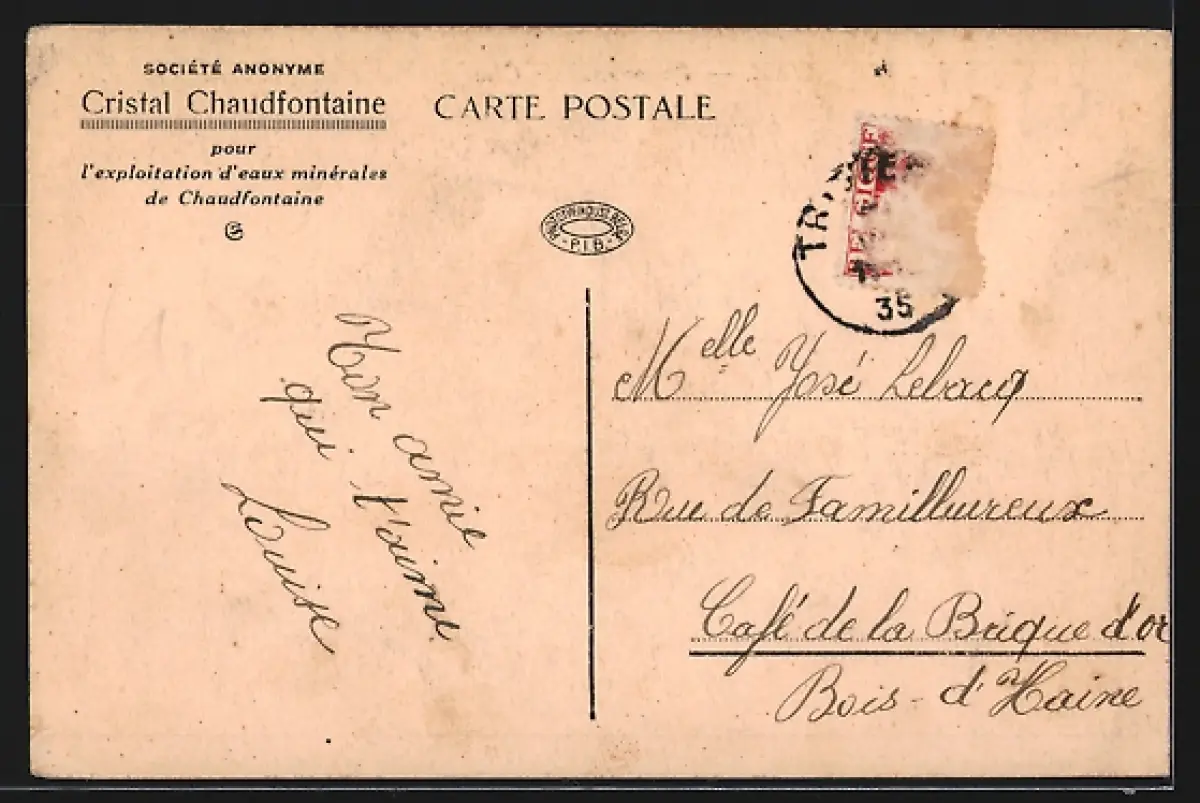 SOCIÉTÉ ANONYME
Cristal Chaudfontaine
pour
l'exploitation d'eaux minérales
de Chaudfontaine
CARTE POSTALE
P.I.B.
35
Mon amie
qui t'aime
Louise
Melle José Lebacq
Rue de Familleureux
Café de la Brique d'or
Bois-d'Haine